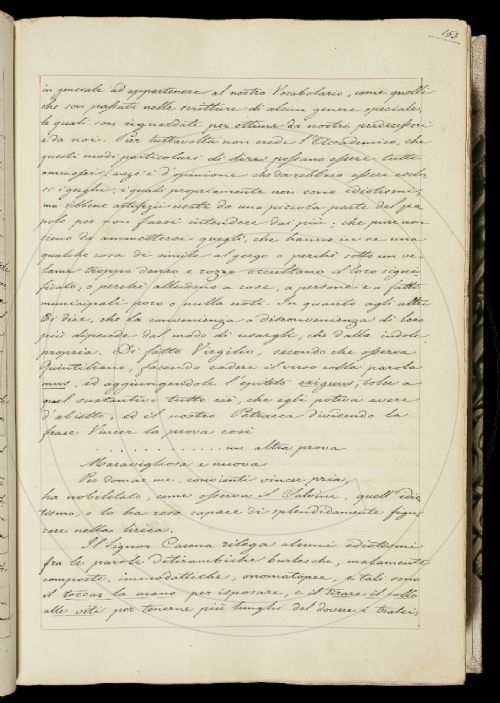 153
in generale ad appartenere al nostro Vocabolario, come quelli
che son passati nelle scritture di alcun genere speciale,
le quali son riguardate per ottime da nostri predecessori
e da noi. Per tuttavolta non crede l'Accademico, che
questi modi particolari di dire possano essere tutti
ammessi, anzi è d'opinione che darebbero essere esclu-
si i quegli, i quali propriamente non sono idiotismi,
ma sibbene usate da una piccola parte del po-
polo per non farsi intendere dai più; che pure non
sieno da ammettersi quegli, che hanno in se una
qualche cosa di simile al gergo o perchè sotto un ve-
lame troppo denso e rozzo occultano il loro signi-
ficato, o perchè alludono a cose, a persone e a fatti
municipali poco o nulla noti. In quanto agli altri
Ei dice, che la convenienza o disconvenienza di loro
più dipende dal modo di usargli, che dalla indole
propria. Di fatto Virgilio, secondo che osserva
Quintiliano, facendo cadere il verso colla parola
mus, ed aggiungendole l'epiteto exiguus, tolse a
quel sustantivo tutto ciò, che egli poteva avere
d'abietto; ed il nostro Petrarca dividendo la
frase Vincer la prova così
. . . . . . . . . . . un altra prova
Maravigliosa e nuova
Per domar me, convienti vincer pria,
ha nobilitato, come osserva il Salvini, quell'idio-
tismo, e lo ha reso capace di splendidamente figu-
rare nella lirica.
Il Signor Casena rilega alcuni idiotismi
fra le parole ditirambiche burlesche, malamente
composte, onomatopee, e tali sono
il toccar la mano per isposare, e il tirare il collo
alle viti per tenerne più lunghi del dovere i tralci.